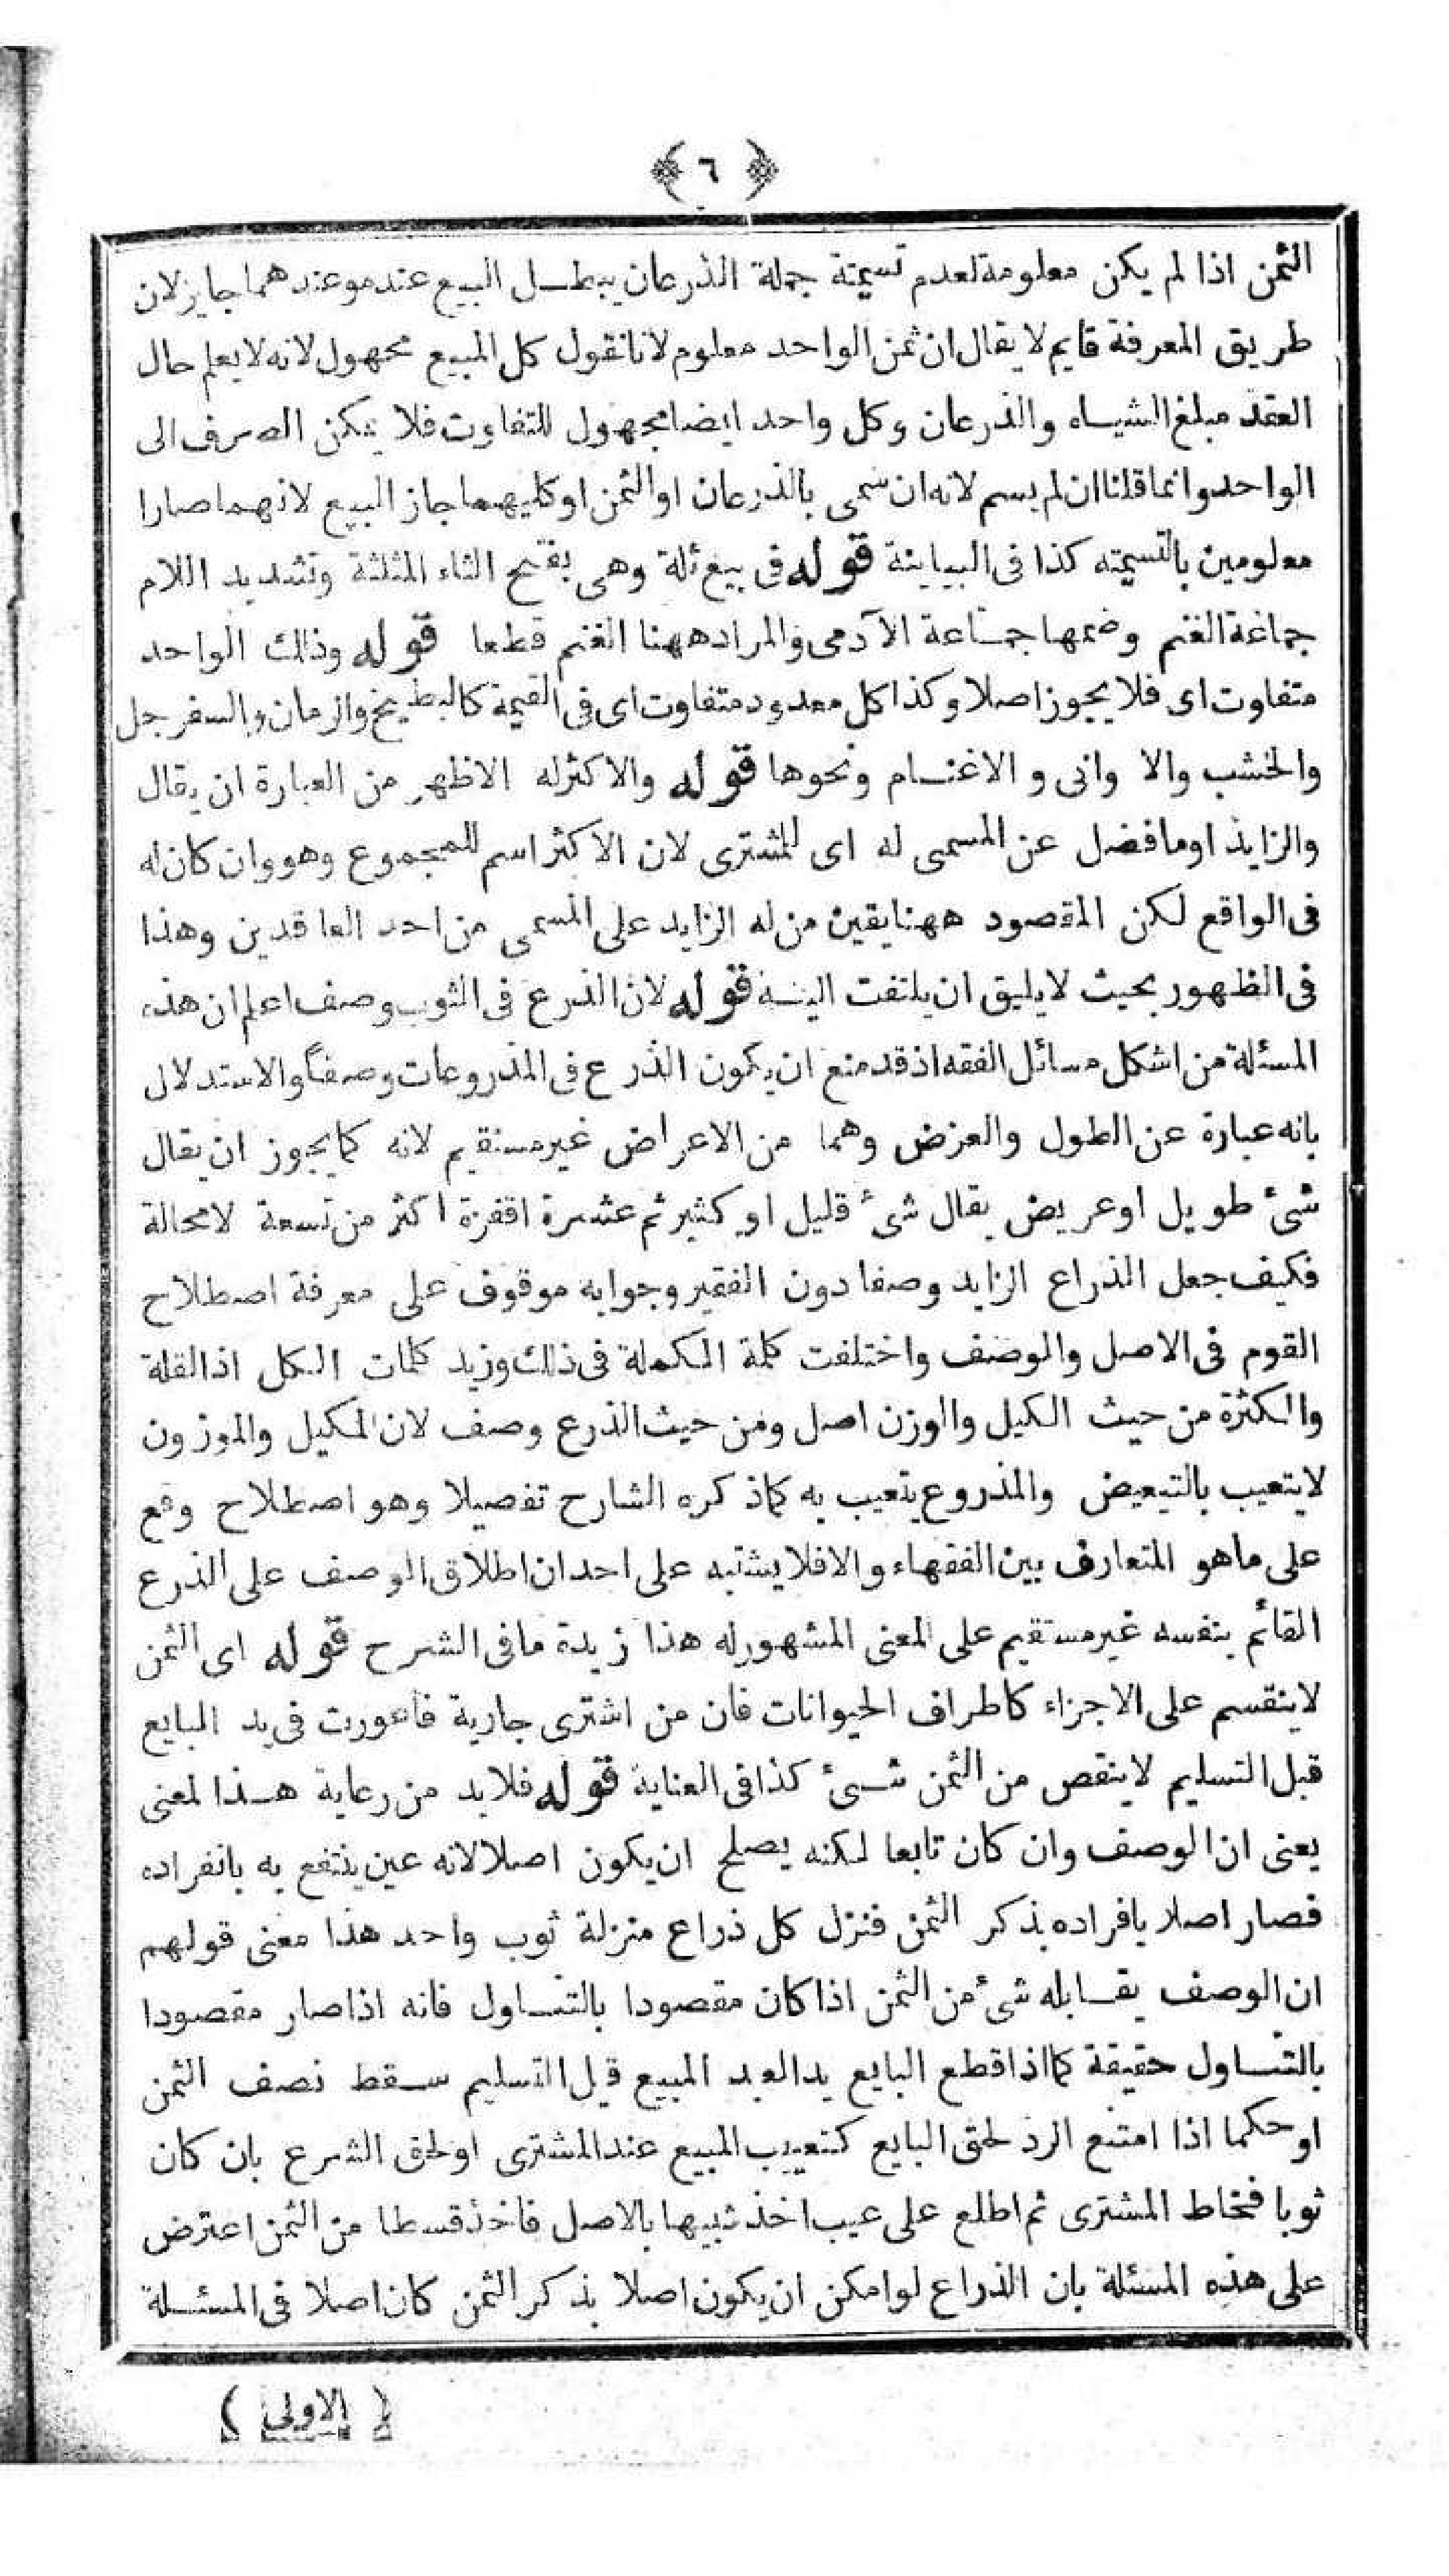 ﴿ ٦ ﴾
الثمن اذا لم يكن معلومة لعدم تسمية جملة الذرعان يبطل البيع عنده وعندهما جايز لان
طريق المعرفة قايم لا يقال ان ثمن الواحد معلوم لانا نقول كل المبيع مجهول لانه لا يعلم حال
العقد مبلغ الشياه والذرعان وكل واحد ايضا مجهول للتفاوت فلا يمكن الصرف الى
الواحد وانما قلنا ان لم يسم لانه ان سمى بالذرعان او الثمن او كليهما جاز البيع لانهما صارا
معلومين بالتسمية كذا فى البيانية قوله فى بيع ثلة وهى بفتح الثاء المثلثة وتشديد اللام
جماعة الغنم وضمها جماعة الآدمى والمراد ههنا الغنم قطعا قوله وذلك الواحد
متفاوت اى فلا يجوز اصلا وكذا كل معدود متفاوت اى فى القيمة كالبطيخ والرمان والسفرجل
والخشب والا وانى و الاغنام ونحوها قوله والاكثر له الاظهر من العبارة ان يقال
والزايد او ما فضل عن المسمى له اى للمشترى لان الاكثر اسم للمجموع وهو وان كان له
فى الواقع لكن المقصود ههنا يقين من له الزايد على المسمى من احد العاقدين وهذا
فى الظهور بحيث لا يليق ان يلتفت اليه قوله لان الذرع فى الثوب وصف اعلم ان هذه
المسئلة من اشكل مسائل الفقه اذ قد منع ان يكون الذرع فى المذروعات وصفا والاستدلال
بانه عبارة عن الطول والعرض وهما من الاعراض غير مستقيم لانه كما يجوز ان يقال
شئ طويل او عريض يقال شئ قليل او كثير ثم عشرة اقفزة اكثر من تسعة لا محالة
فكيف جعل الذراع الزايد وصفا دون القفيز وجوابه موقوف على معرفة اصطلاح
القوم فى الاصل والوصف واختلفت كلمة الكملة فى ذلك وزبد كلمات الكل اذ القلة
والكثرة من حيث الكيل والوزن اصل ومن حيث الذرع وصف لان المكيل والموزون
لا يتعيب بالتبعيض والمذروع يتعيب به كما ذكره الشارح تفصيلا وهو اصطلاح وقع
على ما هو المتعارف بين الفقهاء والا فلا يشتبه على احد ان اطلاق الوصف على الذرع
القائم بنفسه غير مستقيم على المعنى المشهور له هذا زبدة ما فى الشرح قوله اى الثمن
لا ينقسم على الاجزاء كاطراف الحيوانات فان من اشترى جارية فاعورت فى يد البايع
قبل التسليم لا ينقص من الثمن شئ كذا فى العناية قوله فلا بد من رعاية هذا المعنى
يعنى ان الوصف وان كان تابعا لكنه يصلح ان يكون اصلا لانه عين ينتفع به بانفراده
فصار اصلا بافراده بذكر الثمن فنزل كل ذراع منزلة ثوب واحد هذا معنى قولهم
ان الوصف يقابله شئ من الثمن اذا كان مقصودا بالتناول فانه اذا صار مقصودا
بالتناول حقيقة كما اذا قطع البايع يد العبد المبيع قبل التسليم سقط نصف الثمن
او حكما اذا امتنع الرد لحق البايع كتعييب المبيع عند المشترى او لحق الشرع بان كان
ثوبا فخاط المشترى ثم اطلع على عيب اخذ شبيها بالاصل فاخذ قسطا من الثمن اعترض
على هذه المسئلة بان الذراع لو امكن ان يكون اصلا بذكر الثمن كان اصلا فى المسئلة
﴿ الاولى ﴾